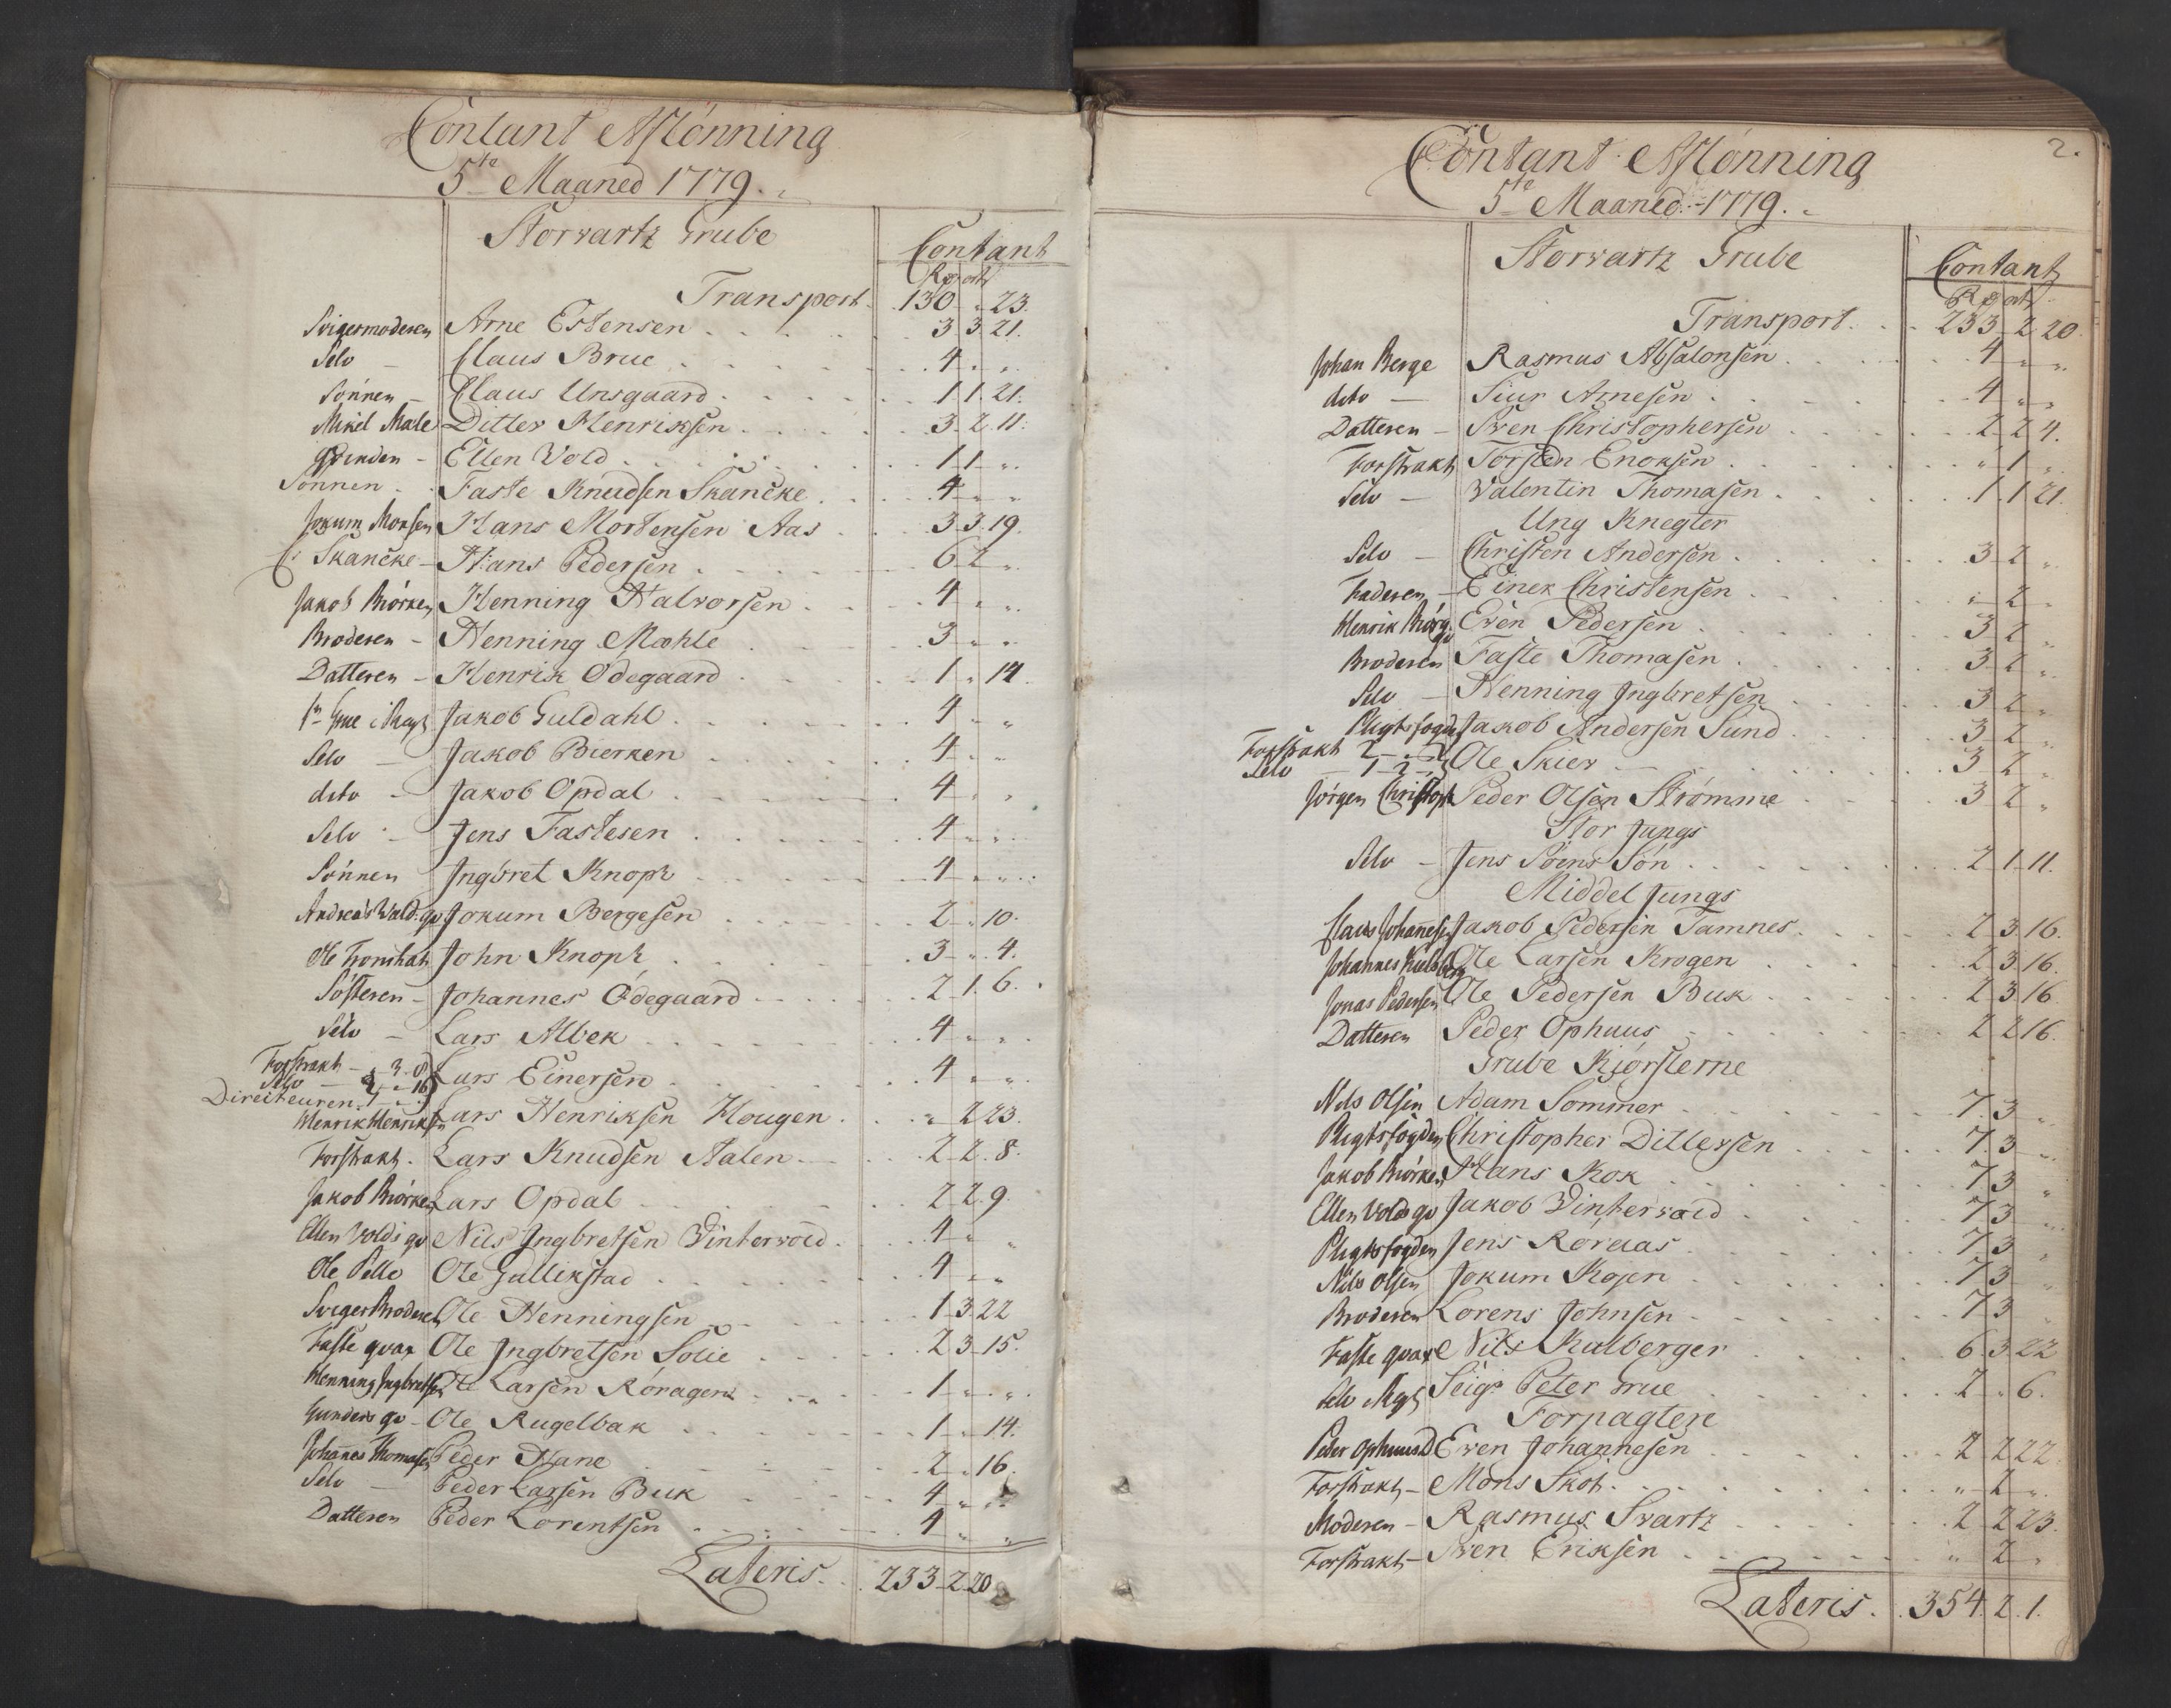 Contant Aflönning
5te Maaned 1779.
Storvartz Grube
Contant
Rd ort
Transport 130 " 23.
Svigermoderen Arne Estensen 3 3 21.
Selv – Claus Brue 4 " "
Sönnen – Claus Unsgaard 1 1 21.
Mikel Male Ditlev Henriksen 3 2 11.
Qvinden – Ellen Vold 1 1 "
Sönnen Faste Knudsen Skancke 4 " "
Jokum Monsen Hans Mortensen Aas 3 3 19.
C: Skancke – Hans Pedersen 6 2 "
Jakob Biörken Henning Halvorsen 4 " "
Broderen – Henning Mæhle 3 " "
Datteren – Henrik Ödegaard 1 " 14.
Grue i Jakob Guldahl 4 " "
Selv – Jakob Bierken 4 " "
dito – Jakob Opdal 4 " "
Selv – Jens Fastesen 4 " "
Sönnen Ingbret Knoph 4 " "
Andreas Wald: qv Jokum Bergesen 2 " 10.
Ole John Knoph 3 " 4.
Sösteren – Johannes Ödegaard 2 1 6.
Selv – Lars Albek 4 " "
Forstrakt – " 3 8
Selv – 2 " 16
Lars Einersen 4 " "
Directeuren 1 " "
Henrik Henriksen Lars Henriksen Hougen " 2 23.
Forstrakt. Lars Knudsen Aalen 2 2 8.
Jakob Biörken Lars Opdal 2 2 9.
Ellen Volds qv Nils Ingbretsen Vintervold 4 " "
Ole Pelle Ole Gullikstad 4 " "
Sviger Broderen Ole Henningsen 1 3 22
Faste qvar Ole Ingbretsen Solie 2 3 15.
Henning Ingbretsen Ole Larsen Röragen 1 " "
Gunders qv – Ole Rugelbak 1 " 14.
Johannes Thomasen Peder Hane 2 " 16.
Selv – Peder Larsen Buk 4 " "
Datteren Peder Lorentsen 4 " "
Lateris 233 2 20
2.
Contant Aflönning
5te Maaned 1779.
Storvartz Grube
Contant
Rd ort
Transport 233 2 20.
Johan Berge Rasmus Absalonsen 4 " "
dito – Siur Arnesen 4 " "
Datteren – Sven Christophersen 2 2 4.
Forstrakt Torsten Enoksen " 1 "
Selv – Valentin Thomasen 1 1 21.
Ung Knegter
Selv – Christen Andersen 3 2 "
Faderen – Einer Christensen " 2 "
Henrik Biörg. qv Even Pedersen 3 2 "
Broderen Faste Thomasen 3 2 "
Selv – Henning Ingbretsen 3 2 "
Pligtsfogden Jakob Andersen Sund 3 2 "
Forstrakt 2 " "
Selv – 1 2 "
Ole Skier 3 2 "
Jörgen Christoph Peder Olsen Strömme 3 2 "
Stor Jungs
Selv – Jens Söens Sön 2 1 11.
Middel Jungs
Claus Johannesen Jakob Pedersen Tamnes 2 3 16.
Johannes Kulberg Ole Larsen Krogen 2 3 16.
Jonas Pedersen Ole Pedersen Buk 2 3 16
Datteren Peder Ophuus 2 2 16.
Grube Kjörslerne
Nils Olsen Adam Sommer 7 3 "
Pligtsfogden Christopher Ditlevsen 7 3 "
Jakob Biörken Hans Kok 7 3 "
Ellen Volds qv Jakob Vintervold 7 3 "
Pligtsfogden Jens Röraas 7 3 "
Nils Olsen Jokum Kojen 7 3 "
Broderen Lorens Johnsen 7 3 "
Faste qvar Nils Kulberger 6 3 22
Selv Seigr Peter Grue 2 " 6.
Forpagtere
Peder Ophuus D Even Johannesen 2 2 22.
Forstrakt – Mons Skot " 2 "
Moderen – Rasmus Svartz 2 2 23.
Forstrakt – Sven Eriksen " 2 "
Lateris. 354 2 1.